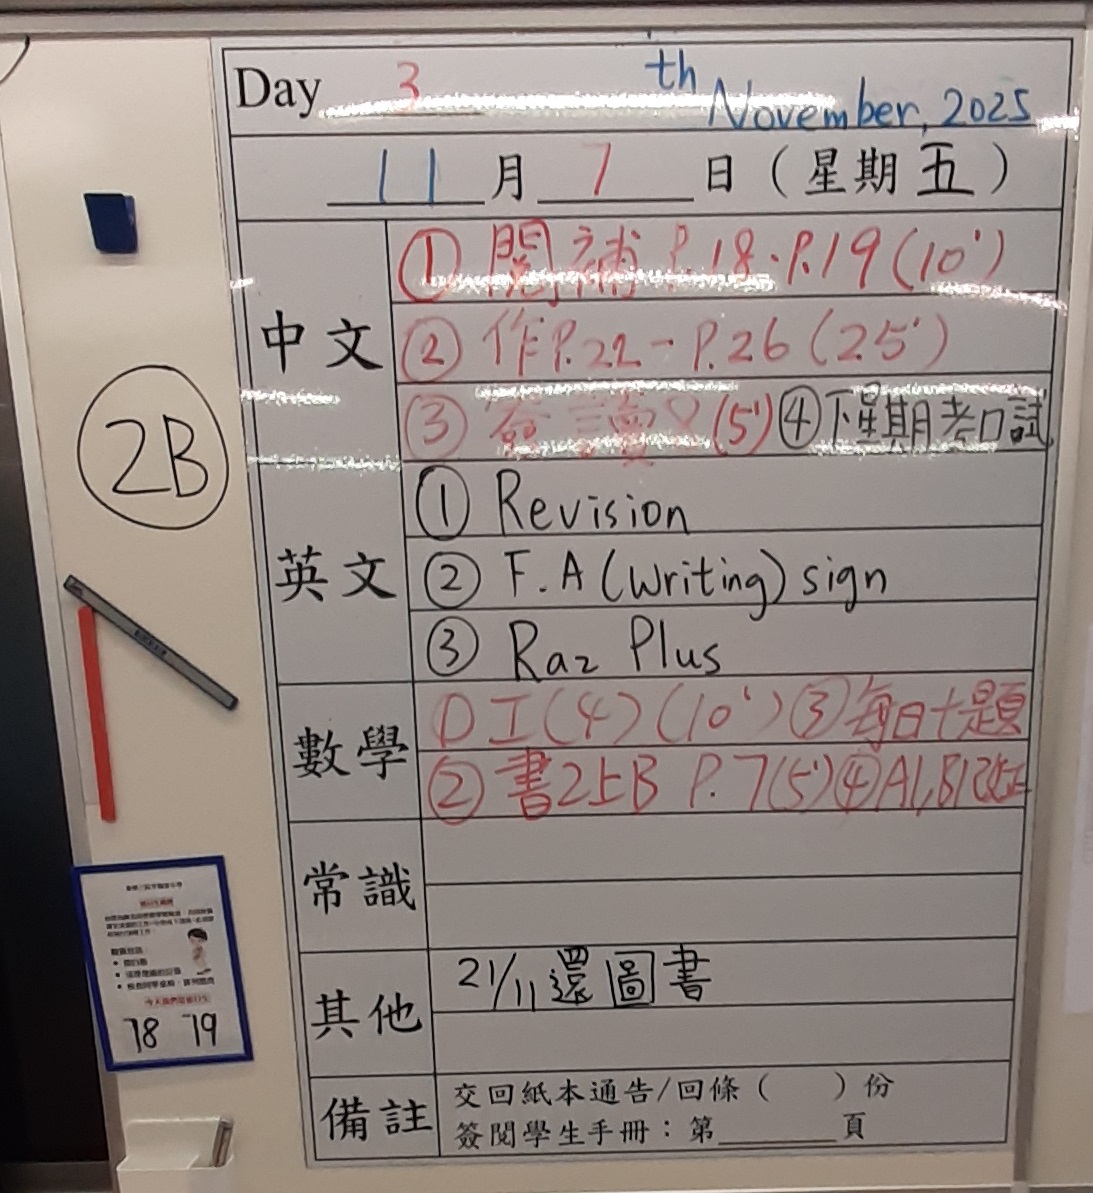 Day 3 th November, 2025
11 月 7 日（星期五）
中文
① 閱補 P.18、P.19 (10')
② 作P.22-P.26 (25')
③ (5') ④下星期考口試
英文
① Revision
② F.A (Writing) sign
③ Raz Plus
數學
① 工(4) (10') ③每日十題
② 書2上B P.7(5') ④A1,B1改正
常識
其他
21/11 還圖書
備註
交回紙本通告/回條（ ）份
簽閱學生手冊：第______頁
2B
18 19